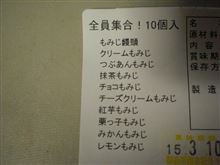 全員集合！10個入
もみじ饅頭
クリームもみじ
つぶあんもみじ
抹茶もみじ
チョコもみじ
チーズクリームもみじ
紅芋もみじ
栗っ子もみじ
みかんもみじ
レモンもみじ
名
原材料
内
賞味期
保存方
製造
15 3 1